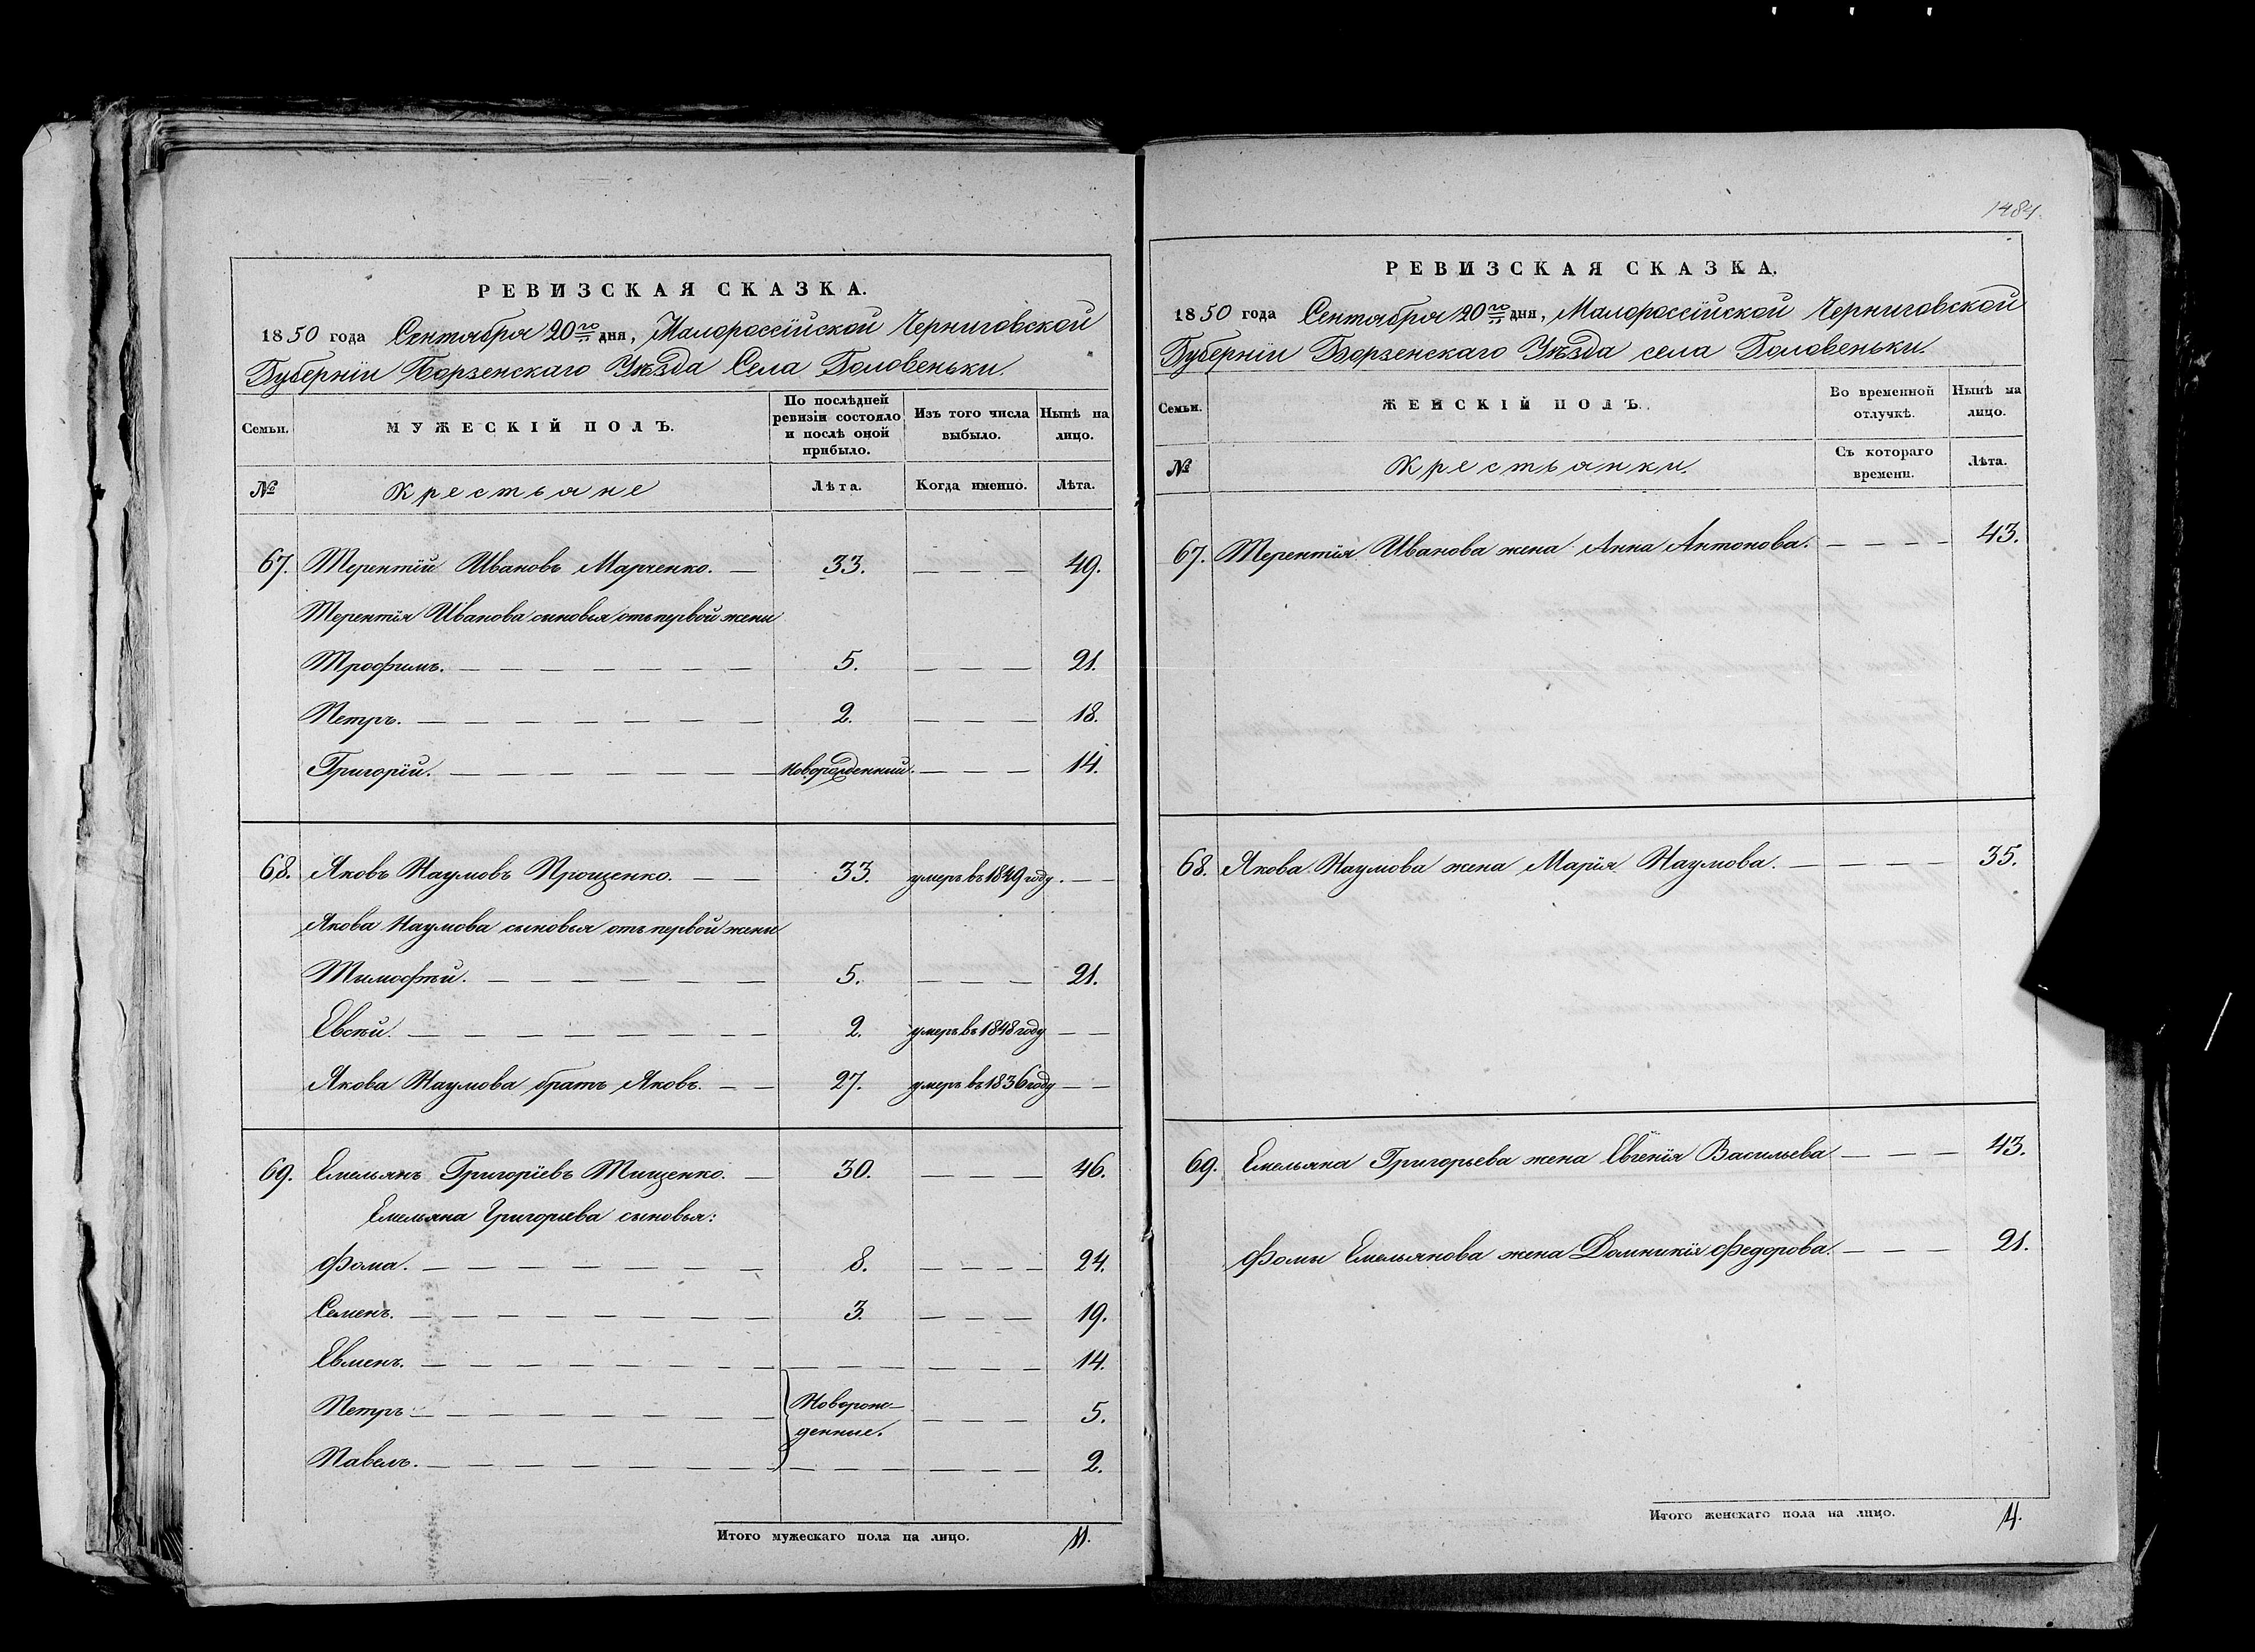 РЕВИЗСКАЯ СКАЗКА.
1850 года Сентября 20го дня, Малороссійской Черниговской
Губерніи Борзенскаго Уѣзда Села Головеньки.
Семьи.
МУЖЕСКІЙ ПОЛЪ.
По послѣдней ревизіи состояло и послѣ оной прибыло.
Изъ того числа выбыло.
Нынѣ на лицо.
№
Крестьяне
Лѣта.
Когда именно.
Лѣта.
67. Терентій Ивановъ Марченко. — 33. — — — 49.
Терентія Иванова сыновья отъ первой жены
Трофимъ. — — — — — — — 5. — — — 21.
Петръ. — — — — — — — 2. — — — 18.
Григорій. — — — — — — — новорожденный. — — — 14.
68. Яковъ Наумовъ Прощенко. — — 33. умеръ въ 1849 году. — —
Якова Наумова сыновья отъ первой жены
Тимофѣй. — — — — — — 5. — — — 21.
Евсѣй. — — — — — — — 2. умеръ въ 1848 году — —
Якова Наумова братъ Яковъ. — — 27. умеръ въ 1836 году — —
69. Емельянъ Григоріевъ Тищенко. — 30. — — — 46.
Емельяна Григорьева сыновья:
Фома. — — — — — — — 8. — — — — 24.
Семенъ. — — — — — — — 3. — — — 19.
Евменъ. — — — — — — — — — — — — — — 14.
Петръ. — — — — — — — Новорож-
денные. — — — 5.
Павелъ. — — — — — — — — — — — — — — 2.
Итого мужескаго пола на лицо. 11.
1484.
РЕВИЗСКАЯ СКАЗКА.
1850 года Сентября 20го дня, Малороссійской Черниговской
Губерніи Борзенскаго Уѣзда села Головеньки.
Семьи.
ЖЕНСКІЙ ПОЛЪ.
Во временной отлучкѣ.
Нынѣ на лицо.
№
Крестьянки.
Съ котораго времени.
Лѣта.
67. Терентія Иванова жена Анна Антонова. — — — — 43.
68. Якова Наумова жена Марія Наумова. — — — — 35.
69. Емельяна Григорьева жена Евгенія Васильева — — — 43.
Фомы Емельянова жена Домникія Федорова. — — — 21.
Итого женскаго пола на лицо. 4.